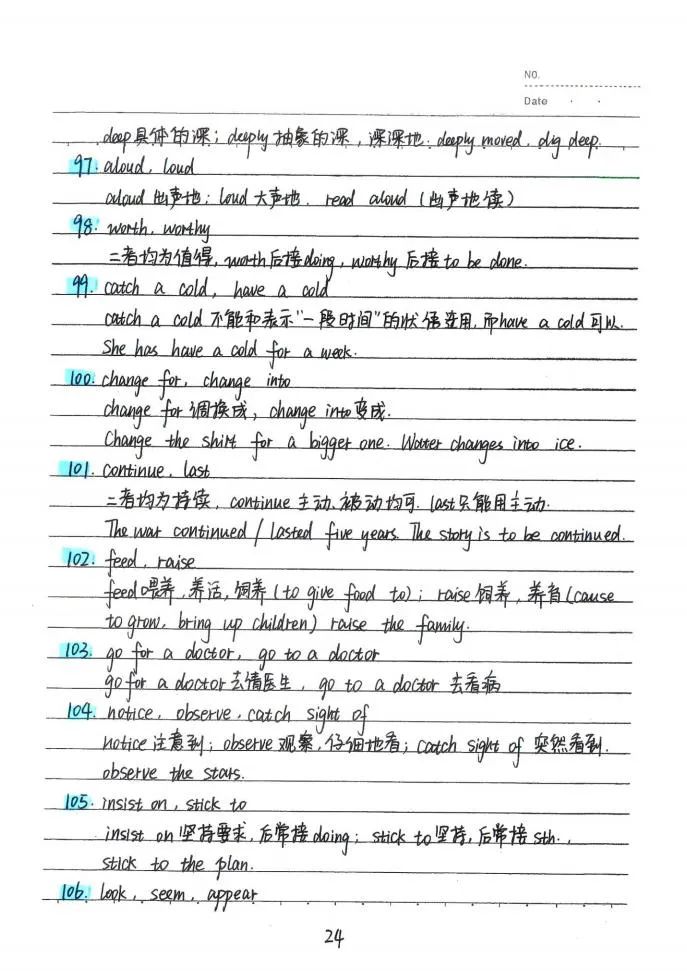 NO.
Date
deep具体的深；deeply抽象的深，深深地. deeply moved. dig deep.
97. aloud, loud
aloud出声地；loud大声地. read aloud (出声地读)
98. worth, worthy
二者均为值得, worth后接doing, worthy 后接 to be done.
99. catch a cold, have a cold
catch a cold 不能和表示"一段时间"的状语连用, 而have a cold可以.
She has have a cold for a week.
100. change for, change into
change for调换成, change into变成.
Change the shirt for a bigger one. Water changes into ice.
101. continue, last
二者均为持续, continue 主动、被动均可. last只能用主动.
The war continued / lasted five years. The story is to be continued.
102. feed, raise
feed喂养, 养活, 饲养 (to give food to); raise 饲养, 养育(cause
to grow, bring up children) raise the family.
103. go for a doctor, go to a doctor
go for a doctor去请医生, go to a doctor 去看病
104. notice, observe, catch sight of
notice注意到；observe观察, 仔细地看；catch sight of 突然看到.
observe the stars.
105. insist on, stick to
insist on坚持要求, 后常接doing; stick to坚持, 后常接sth.,
stick to the plan.
106. look, seem, appear
24